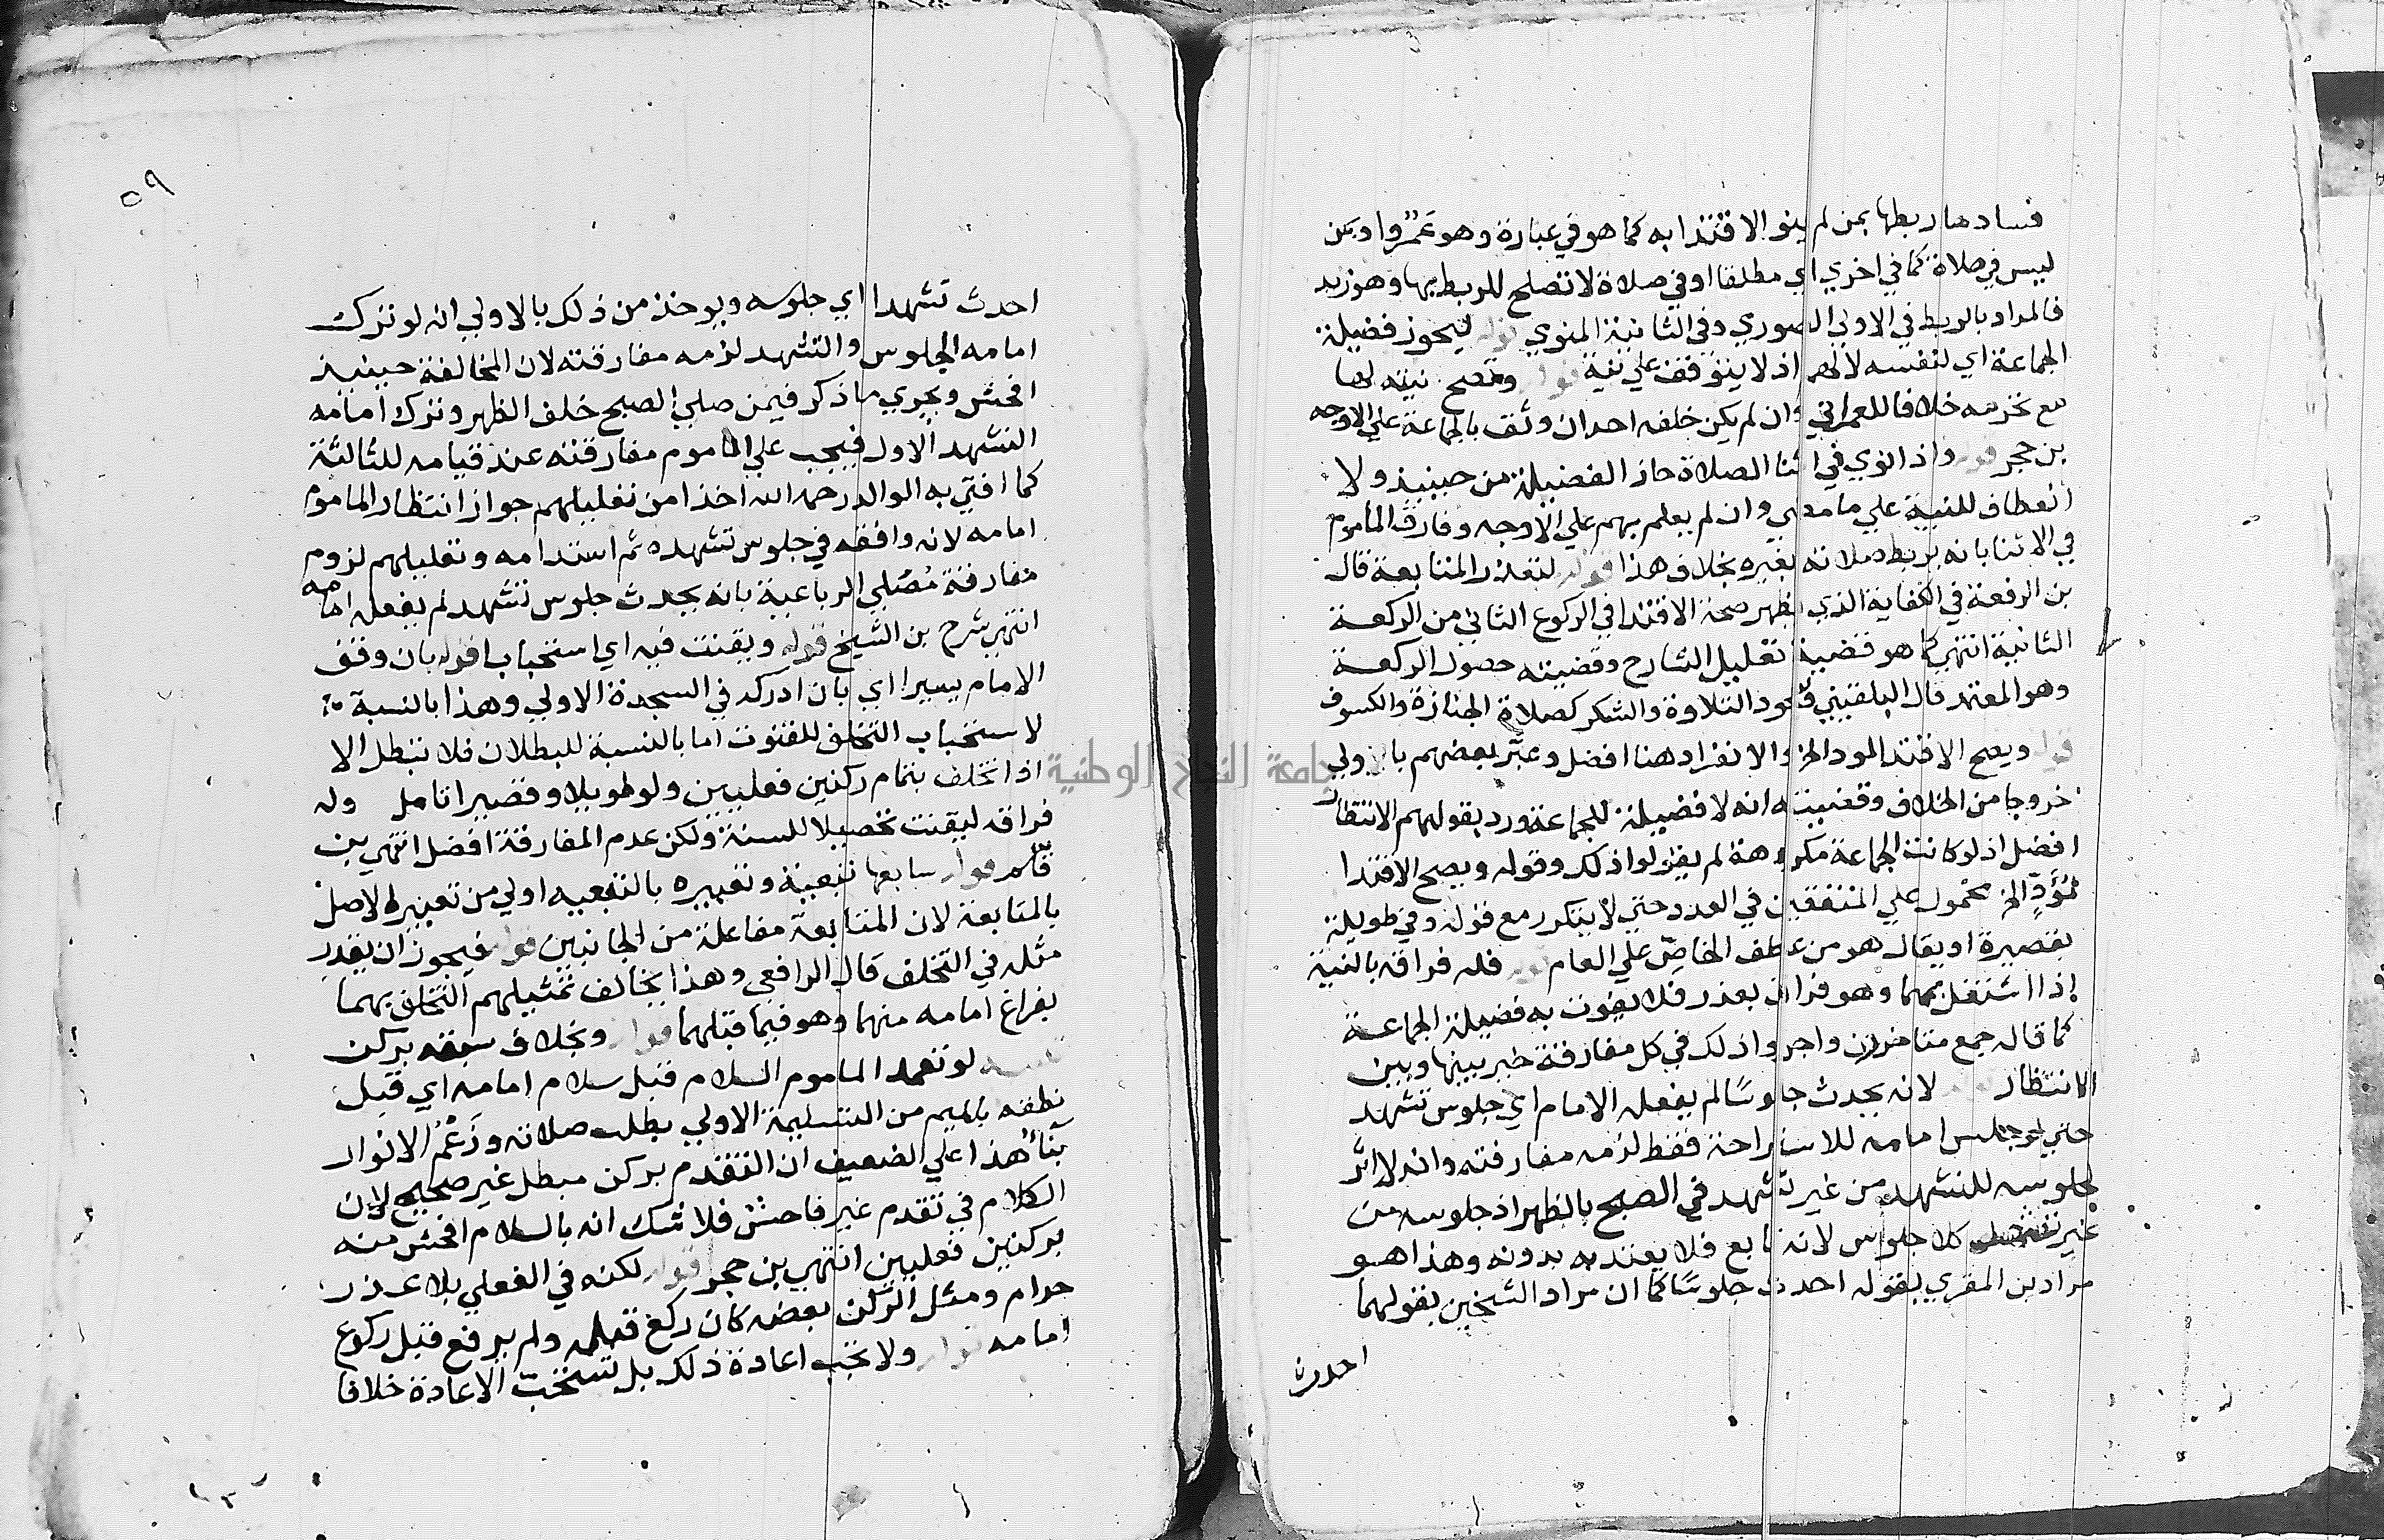 فسادها ربطها بمن لم ينو الاقتدا به كما هو في عبارة وهو عَمْرٌو او بمن
ليس في صلاة كما في اخري اي مطلقا او في صلاة لا تصلح للربط بها وهو زيد
فالمراد بالربط في الاولي الصوري وفي الثانية المنوي قوله ليحوز فضيلة
الجماعة اي لنفسه لا لهم اذ لا يتوقف علي نية قوله وتصح نيته لها
مع تحرمه خلافا للعمراني وان لم يكن خلفه احد ان وثق بالجماعة علي الاوجه
بن حجر قوله واذا نوي في اثنا الصلاة حاز الفضيلة من حينيذ ولا
انعطاف للنية علي ما مضي وان لم يعلم بهم علي الاوجه وفارق المأموم
في الاثنا بانه يربط صلاته بغيره بخلاف هذا قوله لتعذر المتابعة قال
بن الرفعة في الكفاية الذي يظهر صحة الاقتدا في الركوع الثاني من الركعة
الثانية انتهي كما هو قضية تعليل الشارح وقضيته حصول الركعة
وهو المعتمد قال البلقيني وسجود التلاوة والشكر كصلاة الجنازة والكسوف
قوله ويصح الاقتدا لمود الخ والانفراد هنا افضل وعبّر بعضهم بالاولي
خروجا من الخلاف وقضيته انه لا فضيلة للجماعة ورد بقولهم الانتظار
افضل اذ لو كانت الجماعة مكروهة لم يقولوا ذلك وقوله ويصح الاقتدا
لمُؤَدٍّ الخ محمول علي المتفقين في العدد حتي لا يتكرر مع قوله وفي طويلة
بقصيرة او يقال هو من عطف الخاصّ علي العام قوله فله فراقه بالنية
اذا اشتغل بهما وهو فراق بعذر فلا يفوت به فضيلة الجماعة
كما قاله جمع متاخرون واجروا ذلك في كل مفارقة خير بينها وبين
الانتظار قوله لانه يحدث جلوسًا لم يفعله الامام اي جلوس تشهد
حتي لو جلس امامه للاستراحة فقط لزمه مفارقته وانه لا اثر
لجلوسه للتشهد من غير تشهد في الصبح بالظهر اذ جلوسه من
غير تشهد كلا جلوس لانه تابع فلا يعتد به بدونه وهذا هو
مراد بن المقري بقوله احدث جلوسًا كما ان مراد الشيخين بقولهما
احدث
٥٩
احدث تشهدا اي جلوسه ويوخذ من ذلك بالاولي انه لو ترك
امامه الجلوس والتشهد لزمه مفارقته لان المخالفة حينيذ
افحش ويجري ما ذكر فيمن صلي الصبح خلف الظهر وترك امامه
التشهد الاول فيجب علي الماموم مفارقته عند قيامه للثالثة
كما افتي به الوالد رحمه الله اخذا من تعليلهم جواز انتظار الماموم
امامه لانه وافقه في جلوس تشهده ثم استدامه وتعليلهم لزوم
مفارقة مُصَلي الرباعية بانه يحدث جلوس تشهد لم يفعله امامه
انتهي شرح بن الشيخ قوله ويقنت فيه اي استحبابا قوله بان وقف
الامام يسيرا اي بان ادركه في السجدة الاولي وهذا بالنسبة
لاستحباب التخلف للقنوت اما بالنسبة للبطلان فلا تبطل الا
اذا تخلف بتمام ركنين فعليين ولو طويلا وقصيرا تامل وله
فراقه ليقنت تحصيلا للسنة ولكن عدم المفارقة افضل انتهي بن
قاسم قوله سابعها تبعية وتعبيره بالتبعيه اولي من تعبيره الاصل
بالمتابعة لان المتابعة مفاعلة من الجانبين قوله فيجوز ان يقدر
مثله في التخلف قال الرافعي وهذا يخالف تمثيلهم التخلف بهما
بفراغ امامه منهما وهو فيما قبلهما قوله وبخلاف سبقه بركن
لو تعمد الماموم السلام قبل سلام امامه اي قبل
نطقه بالميم من التسليمة الاولي بطلت صلاته وزَعْمُ الانوار
بِنَاءَ هذا علي الضعيف ان التقدم بركن مبطل غير صحيح لان
الكلام في تقدم غير فاحش فلا شك انه بالسلام افحش منه
بركنين فعليين انتهي بن حجر قوله لكنه في الفعلي بلا عذر
حرام ومثل الركن بعضه كان ركع قبله ولم يرفع قبل ركوع
امامه قوله ولا تجب اعادة ذلك بل تستحبّ الاعادة خلافا
جامعة النجاح الوطنية